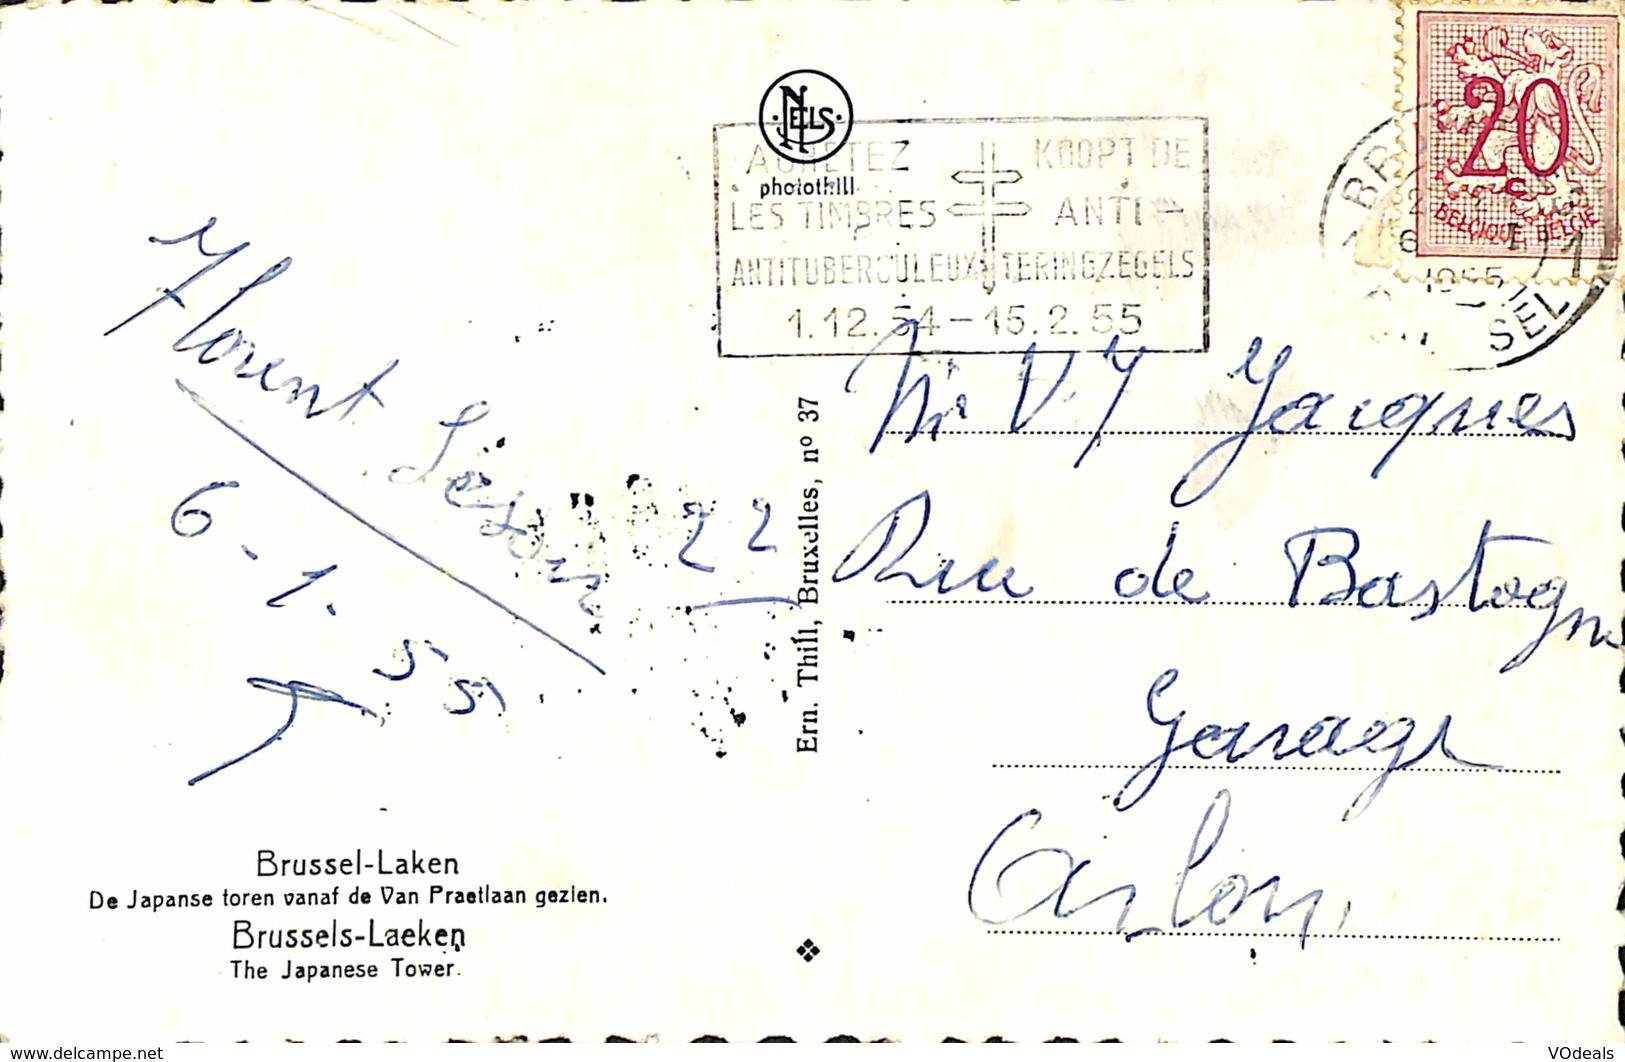 NELS
photothill
ACHETEZ
LES TIMBRES
ANTITUBERCULEUX
KOOPT DE
ANTI-
TERINGZEGELS
1.12.54-15.2.55
20
BELGIQUE BELGIË
1955
Florent
6-1.55
22
Mr V. J Jacques
Rue de Bastogne
Garage
Arlon.
Ern. Thill, Bruxelles, nº 37
Brussel-Laken
De Japanse toren vanaf de Van Praetlaan gezien.
Brussels-Laeken
The Japanese Tower.
www.delcampe.net
VOdeals